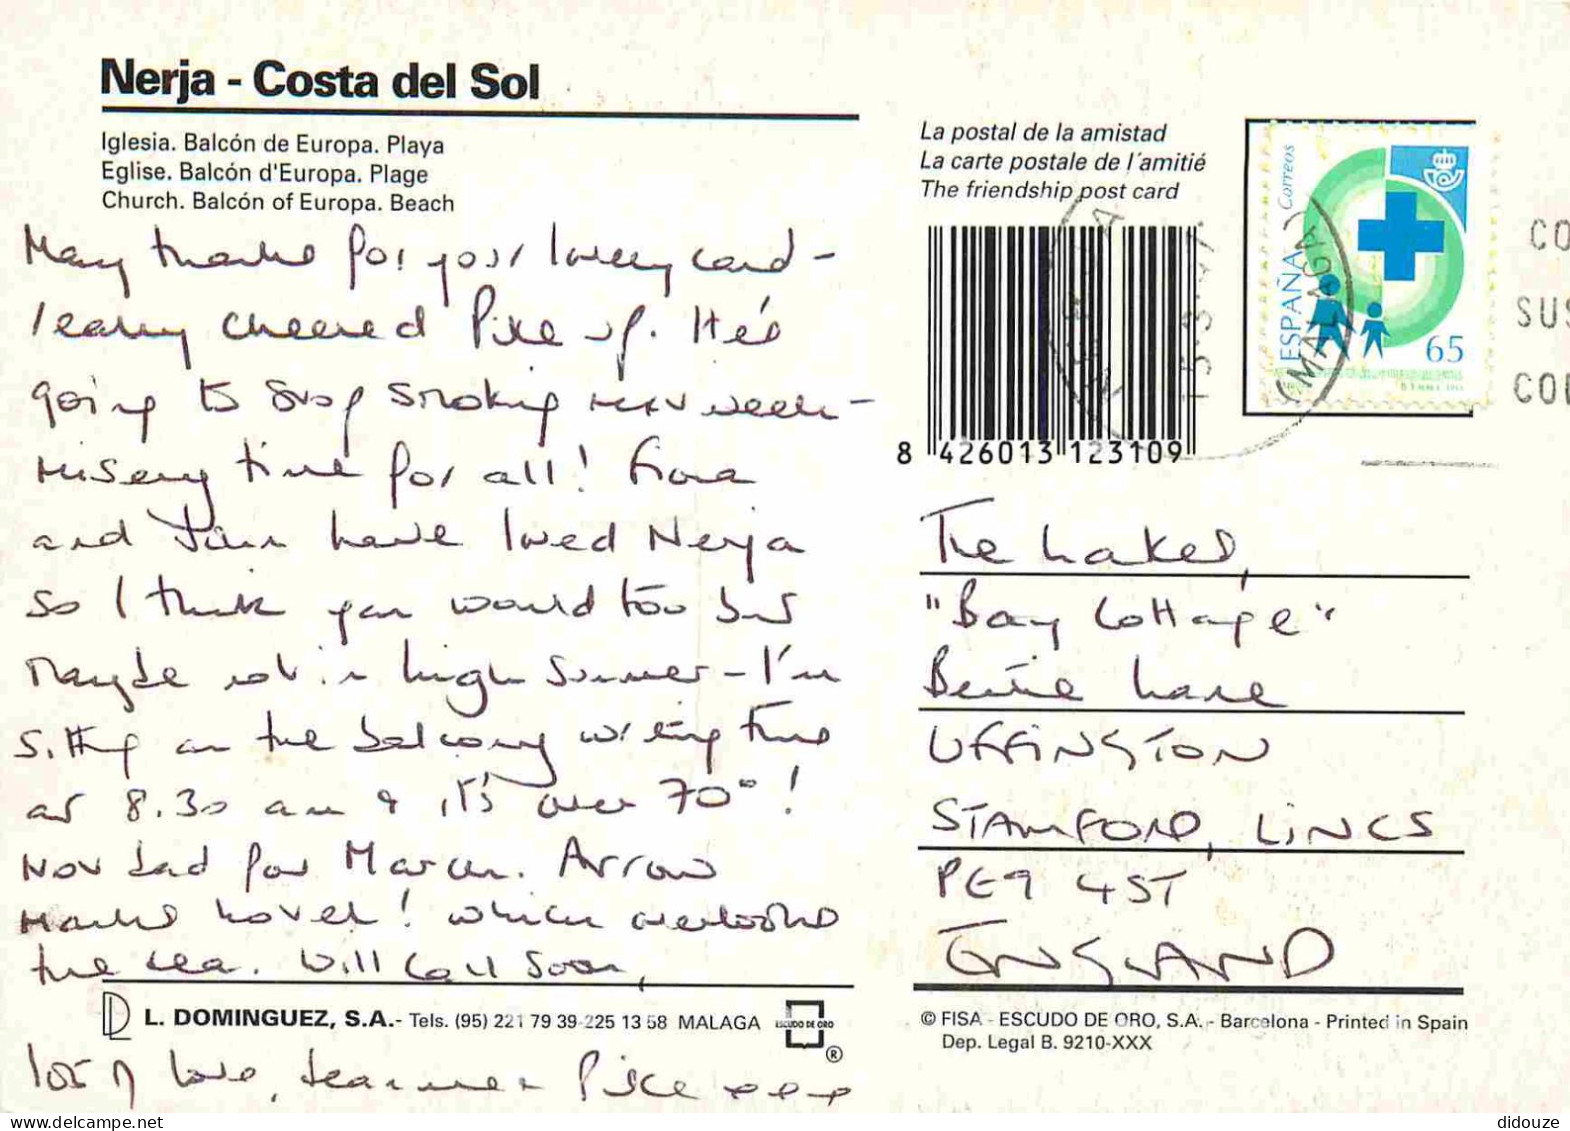 Nerja - Costa del Sol
Iglesia. Balcón de Europa. Playa
Eglise. Balcón d'Europa. Plage
Church. Balcón of Europa. Beach
Many thanks for your lovely card -
really cheered Pixe up. He's
going to stop smoking next week -
misery time for all! Fiona
and have loved Nerja
so I think you would too but
maybe not in high summer - I'm
sitting on the balcony writing this
at 8.30 am & it's over 70°!
Not bad for March. Arrow
Marks hotel! which overlooks
the sea. Will call soon,
L. DOMINGUEZ, S.A.- Tels. (95) 221 79 39-225 13 58 MALAGA
ESCUDO DE ORO
®
lots of love, Pixe xxx
La postal de la amistad
La carte postale de l'amitié
The friendship post card
8 426013 123109
Correos
ESPAÑA
65
MALAGA
CO
SUS
COD
The Lakes,
"Bay Cottage"
Bertie Lane
UFFINGTON
STAMFORD, LINCS
PE9 4ST
ENGLAND
© FISA - ESCUDO DE ORO, S.A. - Barcelona - Printed in Spain
Dep. Legal B. 9210-XXX
didouze